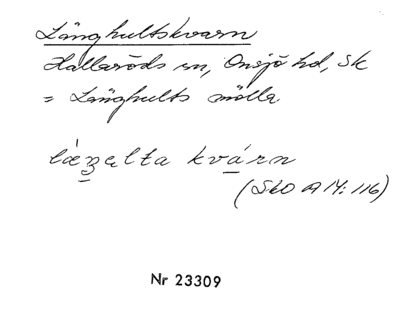 Långhultskvarn
Hallaröds sn, Onsjö hd, Sk
= Långhults mölla
kvarn
(SkO A M: 116)
Nr 23309